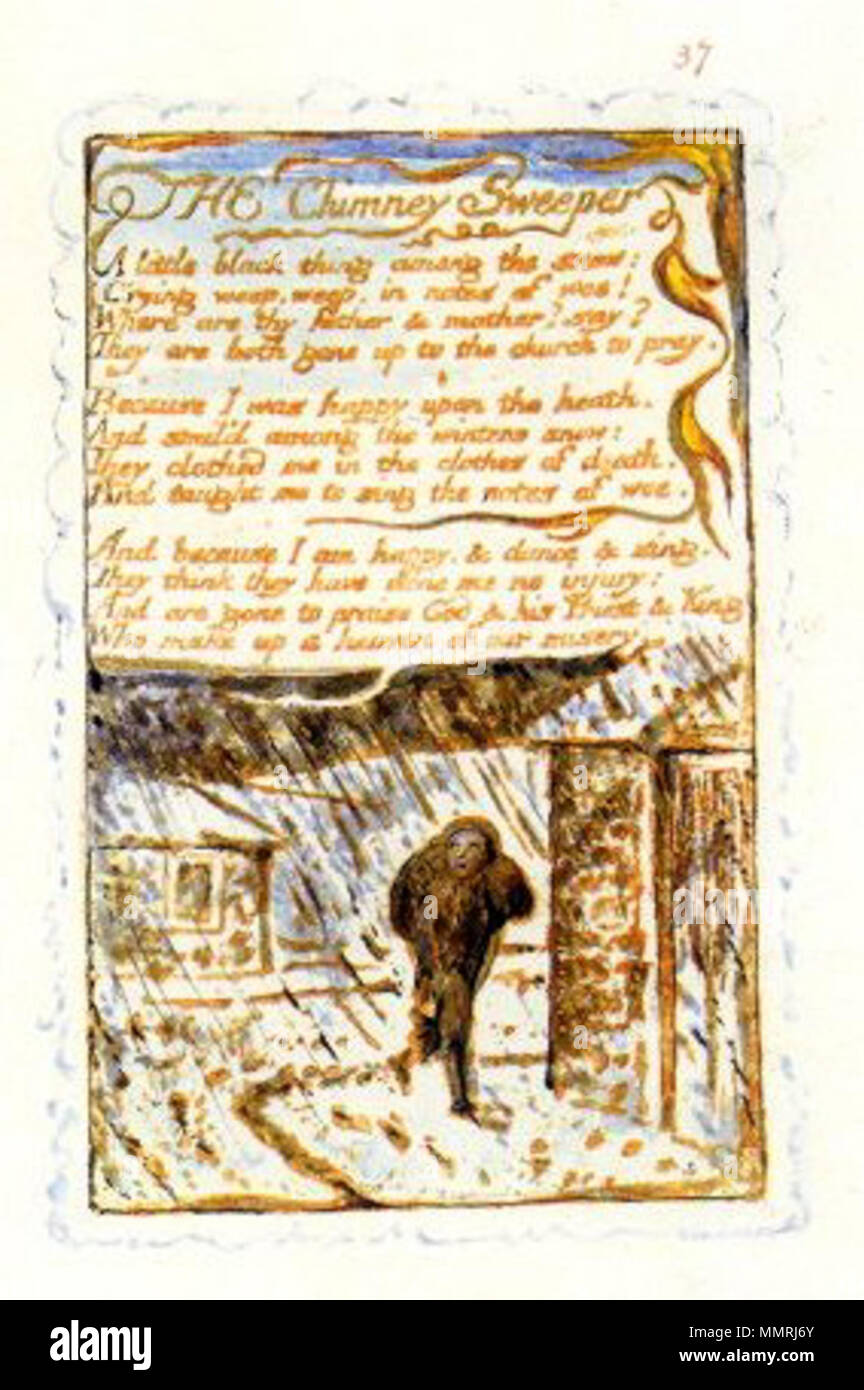 37
THE Chimney Sweeper
A little black thing among the snow:
Crying weep, weep, in notes of woe!
Where are thy father & mother? say?
They are both gone up to the church to pray.
Because I was happy upon the heath.
And smil'd among the winters snow:
They clothed me in the clothes of death.
And taught me to sing the notes of woe.
And because I am happy. & dance & sing.
They think they have done me no injury:
And are gone to praise God & his Priest & King
Who make up a heaven of our misery.
alamy
Image ID: MMRJ6Y
www.alamy.com